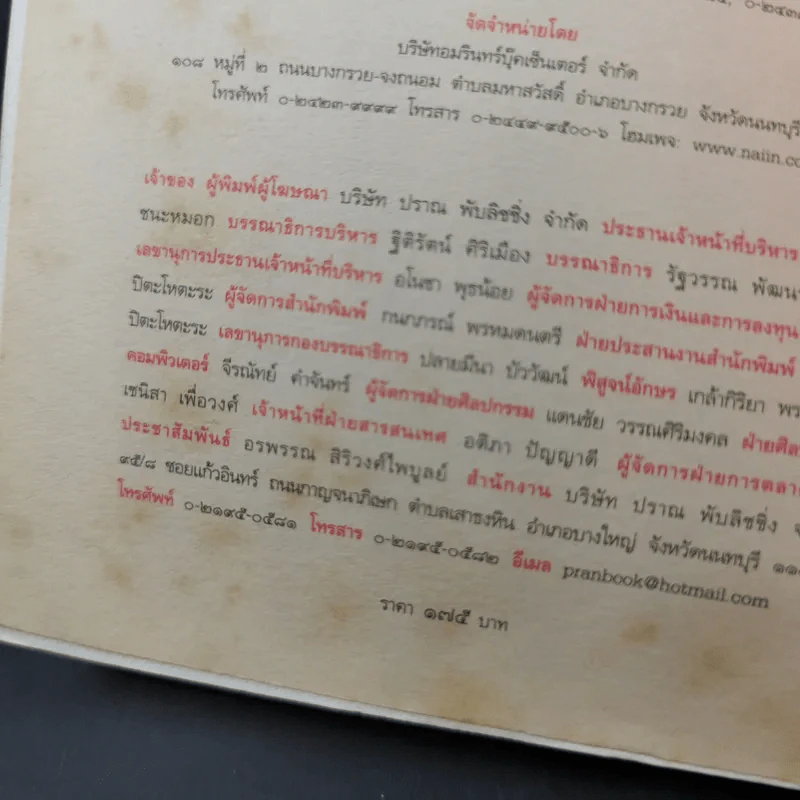 ๐-๒๔๓
จัดจำหน่ายโดย
บริษัทอมรินทร์บุ๊คเซ็นเตอร์ จำกัด
๑๐๘ หมู่ที่ ๒ ถนนบางกรวย-จงถนอม ตำบลมหาสวัสดิ์ อำเภอบางกรวย จังหวัดนนทบุรี
โทรศัพท์ ๐-๒๔๒๓-๙๙๙๙ โทรสาร ๐-๒๔๔๙-๙๕๐๐-๖ โฮมเพจ: www.naiin.co
เจ้าของ ผู้พิมพ์ผู้โฆษณา บริษัท ปราณ พับลิชชิ่ง จำกัด ประธานเจ้าหน้าที่บริหาร
ชนะหมอก บรรณาธิการบริหาร ฐิติรัตน์ ศิริเมือง บรรณาธิการ รัฐวรรณ พัฒน
เลขานุการประธานเจ้าหน้าที่บริหาร อโนชา พุธน้อย ผู้จัดการฝ่ายการเงินและการลงทุน
ปิตะโหตะระ ผู้จัดการสำนักพิมพ์ กนกภรณ์ พรหมดนตรี ฝ่ายประสานงานสำนักพิมพ์
ปิตะโหตะระ เลขานุการกองบรรณาธิการ ปลายมีนา บัววัฒน์ พิสูจน์อักษร เกล้ากิริยา พร
คอมพิวเตอร์ จีรณัทย์ คำจันทร์ ผู้จัดการฝ่ายศิลปกรรม แดนชัย วรรณศิริมงคล ฝ่ายศิล
เชนิสา เพื่อวงศ์ เจ้าหน้าที่ฝ่ายสารสนเทศ อติภา ปัญญาดี ผู้จัดการฝ่ายการตลา
ประชาสัมพันธ์ อรพรรณ สิริวงศ์ไพบูลย์ สำนักงาน บริษัท ปราณ พับลิชชิ่ง จ
๙๕/๘ ซอยแก้วอินทร์ ถนนกาญจนาภิเษก ตำบลเสาธงหิน อำเภอบางใหญ่ จังหวัดนนทบุรี ๑๑
โทรศัพท์ ๐-๒๑๙๕-๐๕๘๑ โทรสาร ๐-๒๑๙๕-๐๕๘๒ อีเมล pranbook@hotmail.com
ราคา ๑๗๕ บาท